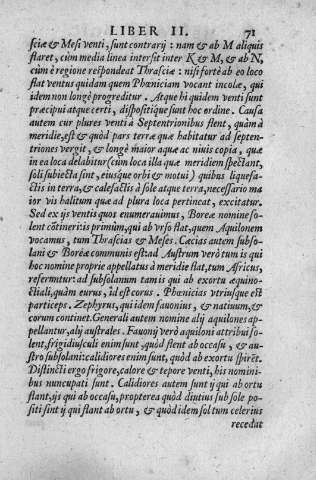 LIBER II. 71
sciæ & Mesi venti, sunt contrarij : nam & ab M aliquis
flaret, cùm media linea intersit inter K & M, & ab N,
cùm è regione respondeat Thrasciæ : nisi fortè ab eo loco
fiat ventus quidam quem Phœniciam vocant incolæ, qui
idem non longè progreditur . Atque hi quidem venti sunt
præcipui atque certi, dispositique sunt hoc ordine . Causa
autem cur plures venti à Septentrionibus flent, quàm à
meridie, est & quòd pars terræ quæ habitatur ad septen-
triones vergit, & longè maior aquæ ac niuis copia , quæ
in ea loca delabitur (cùm loca illa quæ meridiem spectant,
soli subiecta sint, eiusque orbi & motui) quibus liquefa-
ctis in terra, & calefactis à sole atque terra, necessario ma
ior vis halitum quæ ad plura loca pertineat, excitatur.
Sed ex ijs ventis quos enumerauimus , Boreæ nomine so-
lent cōtineri : is primùm, qui ab vrso flat, quem Aquilonem
vocamus, tum Thrascias & Meses. Cæcias autem subso-
lani & Boreæ communis est : ad Austrum verò tum is qui
hoc nomine proprie appellatus à meridie flat, tum Africus,
refermtur : ad subsolanum tam is qui ab exortu æquino-
ctiali, quàm eurus, id est corus . Phœnicias vtriusque est
particeps. Zephyrus, qui idem fauonius, & natiuum, &
corum continet. Generali autem nomine alij aquilones ap-
pellantur, alij australes . Fauonij verò aquiloni attribui so-
lent, frigidiusculi enim sunt, quòd flent ab occasu , & au-
stro subsolani : calidiores enim sunt, quòd ab exortu spirēt.
Distincti ergo frigore, calore & tepore venti, his nomini-
bus nuncupati sunt . Calidiores autem sunt ij qui ab ortu
flant, ijs qui ab occasu, propterea quòd diutius sub sole po-
siti sint ij qui flant ab ortu , & quòd idem sol tum celerius
recedat